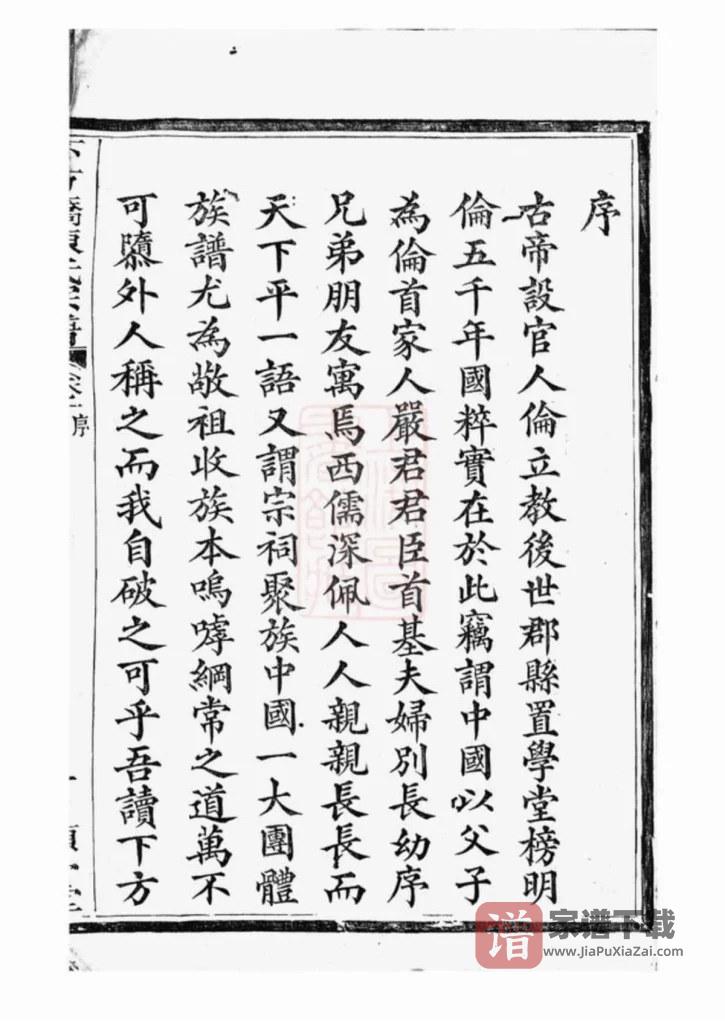 序
古帝設官人倫立教後世郡縣置學堂榜明
倫五千年國粹實在於此竊謂中國以父子
為倫首家人嚴君君臣首基夫婦別長幼序
兄弟朋友寓焉西儒深佩人人親親長長而
天下平一語又謂宗祠聚族中國一大團體
族譜尤為敬祖收族本嗚嘑綱常之道萬不
可隳外人稱之而我自破之可乎吾讀下方
序
谱
家谱下载
www.JiaPuXiaZai.com